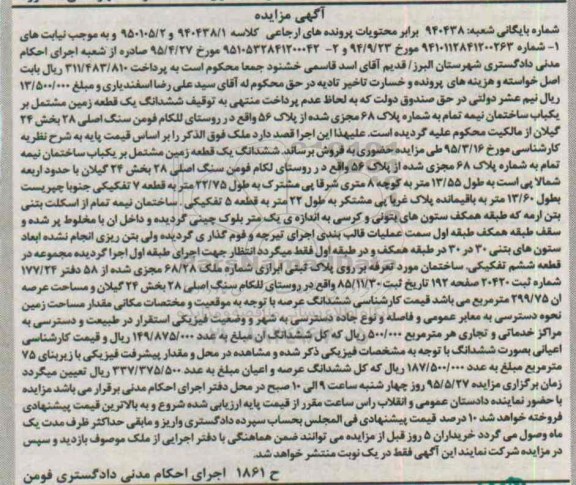 آگهی مزایده
شماره بایگانی شعبه: ۹۴۰۴۳۸ برابر محتویات پرونده های ارجاعی کلاسه ۹۴۰۴۳۸/۱ و ۹۵۰۱۰۵/۲ و به موجب نیابت های
۱- شماره ۹۴۱۰۱۱۲۸۴۱۲۰۰۲۶۳ مورخ ۹۴/۹/۲۳ و ۲- ۹۵۱۰۵۳۲۸۴۱۲۰۰۰۴۲ مورخ ۹۵/۴/۲۷ صادره از شعبه اجرای احکام
مدنی دادگستری شهرستان البرز/ قدیم آقای اسد قاسمی خشنود جمعا محکوم است به پرداخت ۳۱۱/۴۸۳/۸۱۰ ریال بابت
اصل خواسته و هزینه های پرونده و خسارت تاخیر تادیه در حق محکوم له آقای سید علی رضا اسفندیاری و مبلغ ۱۳/۵۰۰/۰۰۰
ریال نیم عشر دولتی در حق صندوق دولت که به لحاظ عدم پرداخت منتهی به توقیف ششدانگ یک قطعه زمین مشتمل بر
یکباب ساختمان نیمه تمام به شماره پلاک ۶۸ مجزی شده از پلاک ۵۶ واقع در روستای للکام فومن سنگ اصلی ۲۸ بخش ۲۴
گیلان از مالکیت محکوم علیه گردیده است. علیهذا این اجرا قصد دارد ملک فوق الذکر را بر اساس قیمت پایه به شرح نظریه
کارشناسی مورخ ۹۵/۳/۱۶ طی مزایده حضوری به فروش برساند. ششدانگ یک قطعه زمین مشتمل بر یکباب ساختمان نیمه
تمام به شماره پلاک ۶۸ مجزی شده از پلاک ۵۶ واقع در روستای لکام فومن سنگ اصلی ۲۸ بخش ۲۴ گیلان با حدود اربعه
شمالا پی است به طول ۱۳/۵۵ متر به کوچه ۸ متری شرقا پی مشترک به طول ۲۲/۷۵ متر به قطعه ۷ تفکیکی جنوبا چپریست
بطول ۱۳/۶۰ متر به باقیمانده پلاک غربا پی مشتکر به طول ۲۲ متر به قطعه ۵ تفکیکی . ساختمان نیمه تمام از اسکلت بتنی
بتن ارمه که طبقه همکف ستون های بتونی و کرسی به اندازه ی یک متر بلوک چینی گردیده و داخل ان با مخلوط پر شده و
سقف طبقه همکف طبقه اول سمت عملیات قالب بندی اجرای تیرچه و فوم گذاری گردیده ولی بتن ریزی انجام نشده ابعاد
ستون های بتنی ۳۰ در ۳۰ در طبقه همکف و در طبقه اول فقط میگرد انتظار جهت اجرای طبقه اول اجرا گردیده مجموعه در
قطعه ششم تفکیکی. ساختمان مورد تعرفه بر روی پلاک ثبتی ابرازی شماره ملک ۶۸/۲۸ مجزی شده از ۵۸ دفتر ۱۷۷/۲۴
شماره ثبت ۲۰۴۲۰ صفحه ۱۹۲ تاریخ ثبت ۸۵/۱۱/۳۰ واقع در روستای للکام سنگ اصلی ۲۸ بخش ۲۴ گیلان و مساحت عرصه
ان ۲۹۹/۷۵ مترمربع می باشد قیمت کارشناسی ششدانگ عرصه با توجه به موقعیت و مختصات مکانی مقدار مساحت زمین
نحوه دسترسی به معابر عمومی و فاصله و نوع جاده دسترسی به شهر و وضعیت فیزیکی استقرار در طبیعت و دسترسی به
مراکز خدماتی و تجاری هر مترمربع ۵۰۰/۰۰۰ ریال که کل ششدانگ ان مبلغ به عدد ۱۴۹/۸۷۵/۰۰۰ ریال و قیمت کارشناسی
اعیانی بصورت ششدانگ با توجه به مشخصات فیزیکی ذکر شده و مشاهده در محل و مقدار پیشرفت فیزیکی با زیربنای ۷۵
مترمربع مبلغ به عدد ۱۸۷/۵۰۰/۰۰۰ ریال که کل ششدانگ عرصه و اعیان مبلغ به عدد ۳۳۷/۳۷۵/۵۰۰ ریال تعیین میگردد
زمان برگزاری مزایده ۹۵/۵/۲۷ روز چهار شنبه ساعت ۹ الی ۱۰ صبح در محل دفتر اجرای احکام مدنی برقرار می باشد مزایده
با حضور نماینده دادستان عمومی و انقلاب راس ساعت مقرر از قیمت پایه ارزیابی شده شروع و به بالاترین قیمت پیشنهادی
فروخته خواهد شد ۱۰ درصد قیمت پیشنهادی فی المجلس بحساب سپرده دادگستری واریز و مابقی حداکثر ظرف مدت یک
ماه وصول می گردد خریداران ۵ روز قبل از مزایده می توانند ضمن هماهنگی با دفتر اجرایی از ملک موصوف بازدید و سپس
در مزایده شرکت نمایند این آگهی فقط در یک نوبت منتشر خواهد شد.
ح ۱۸۶۱ اجرای احکام مدنی دادگستری فومن